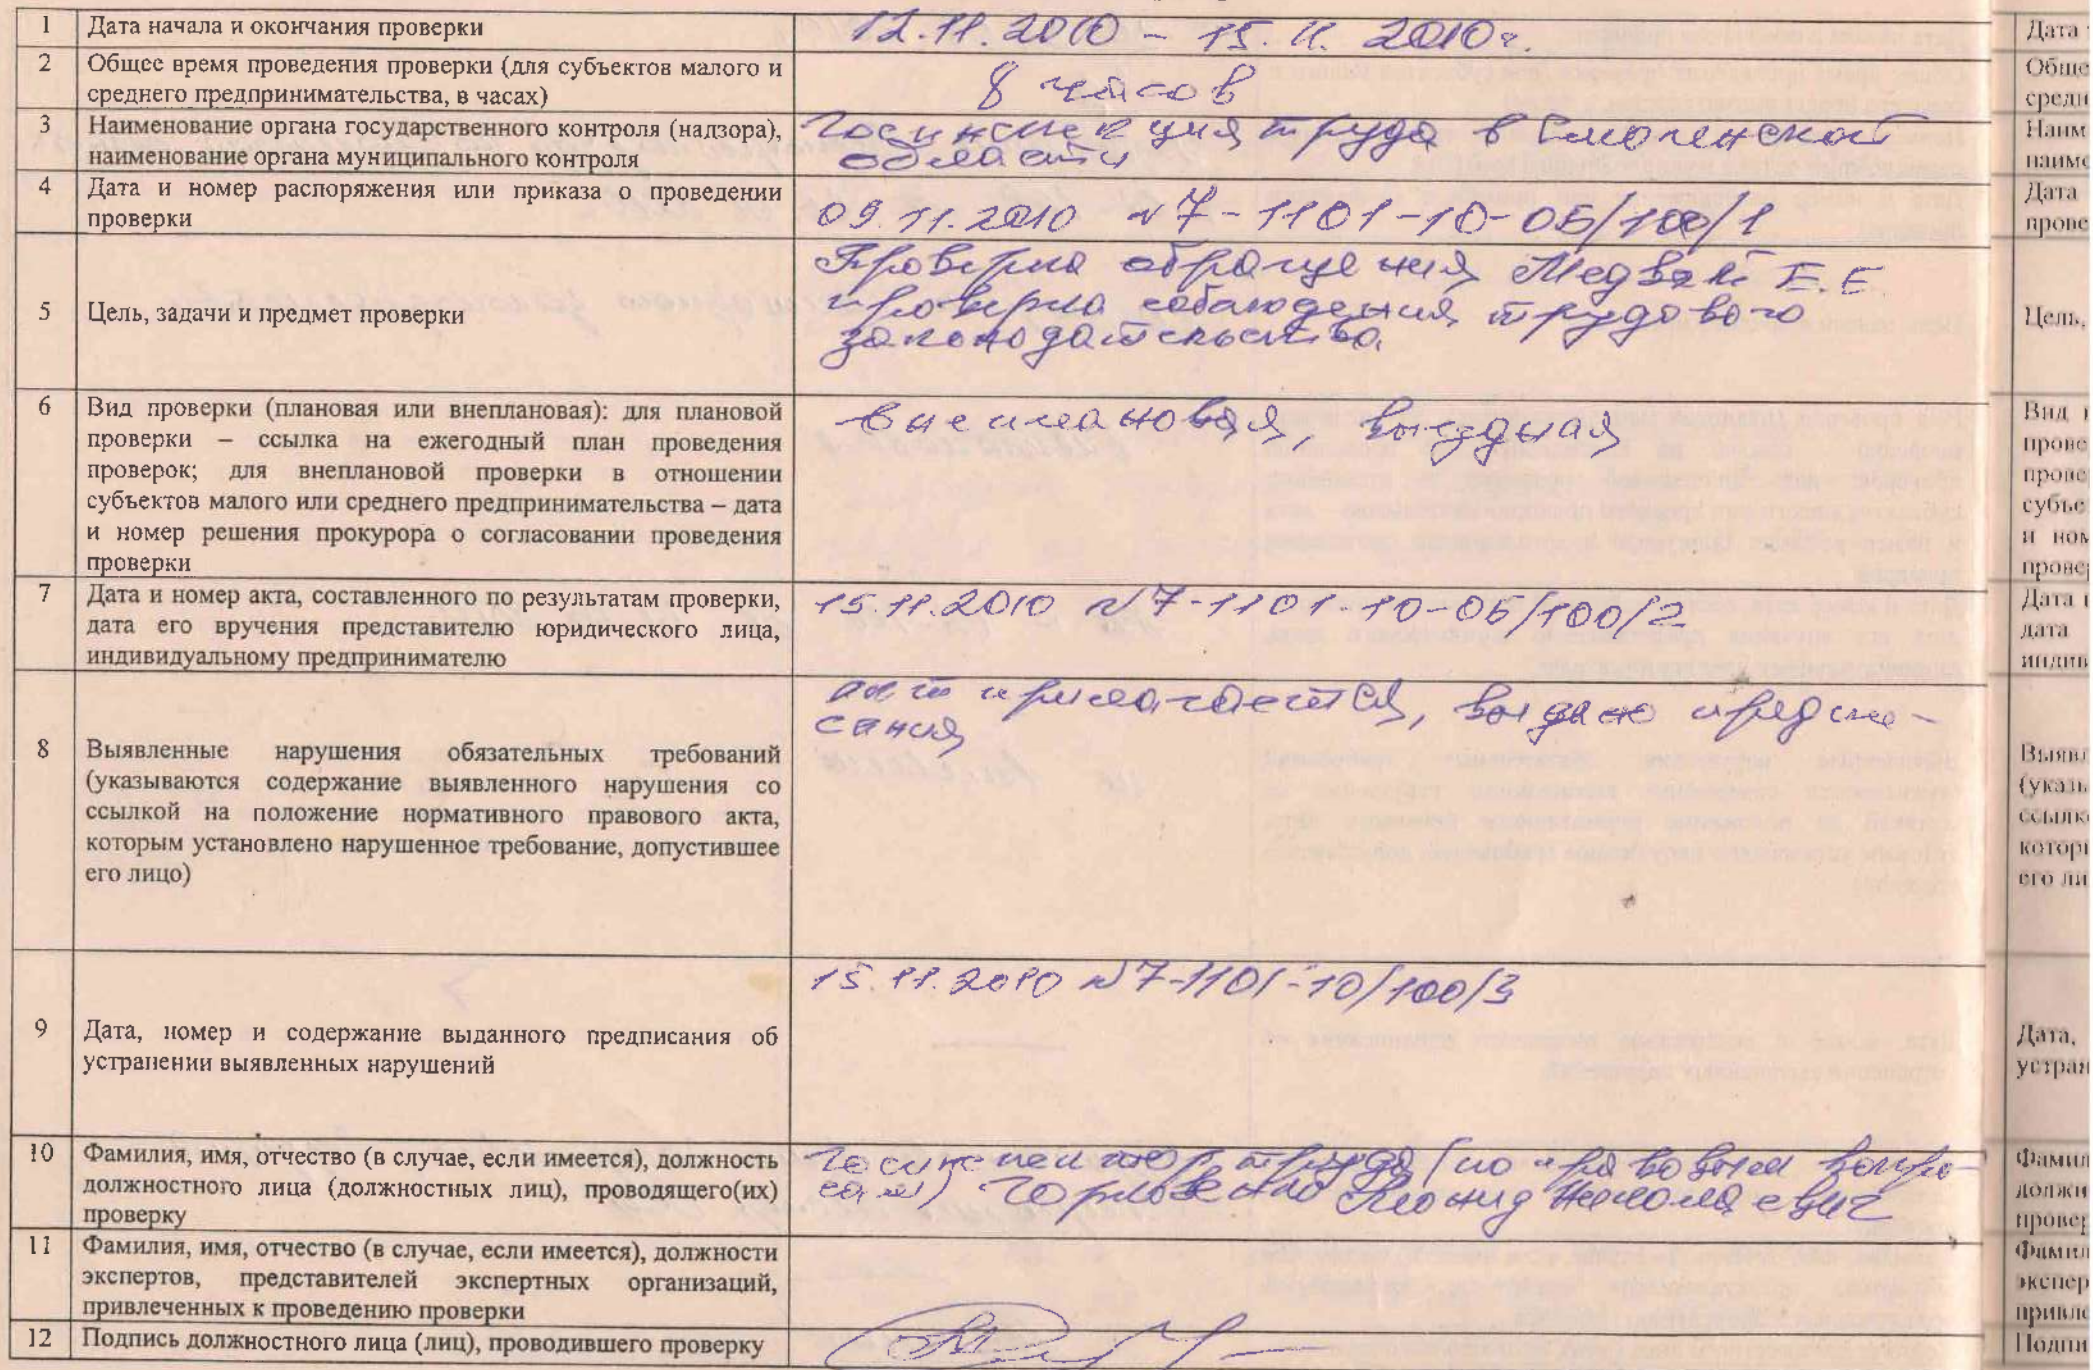 1 Дата начала и окончания проверки 12.11.2010 – 15.11.2010г.
2 Общее время проведения проверки (для субъектов малого и
среднего предпринимательства, в часах) 8 часов
3 Наименование органа государственного контроля (надзора),
наименование органа муниципального контроля
Госинспекция труда в Смоленской
области
4 Дата и номер распоряжения или приказа о проведении
проверки
09.11.2010 №7-1101-10-06/100/1
5 Цель, задачи и предмет проверки
Проверка обращения Е.Е
проверка соблюдения трудового
законодательства.
6 Вид проверки (плановая или внеплановая): для плановой
проверки – ссылка на ежегодный план проведения
проверок; для внеплановой проверки в отношении
субъектов малого или среднего предпринимательства – дата
и номер решения прокурора о согласовании проведения
проверки
внеплановая, выездная
7 Дата и номер акта, составленного по результатам проверки,
дата его вручения представителю юридического лица,
индивидуальному предпринимателю
15.11.2010 №7-1101-10-06/100/2
8 Выявленные нарушения обязательных требований
(указываются содержание выявленного нарушения со
ссылкой на положение нормативного правового акта,
которым установлено нарушенное требование, допустившее
его лицо)
акт прилагается, выдано предпи-
сания
9 Дата, номер и содержание выданного предписания об
устранении выявленных нарушений
15.11.2010 №7-1101-10/100/3
10 Фамилия, имя, отчество (в случае, если имеется), должность
должностного лица (должностных лиц), проводящего(их)
проверку
Госинспектор труда (по правовым вопро-
сам) Леонид Николаевич
11 Фамилия, имя, отчество (в случае, если имеется), должности
экспертов, представителей экспертных организаций,
привлеченных к проведению проверки
12 Подпись должностного лица (лиц), проводившего проверку
Дата
Обще
средн
Наим
наиме
Дата
прове
Цель,
Вид
прове
прове
субъе
и ном
прове
Дата
дата
индив
Выявл
(указы
ссылк
котор
его ли
Дата,
устран
Фамил
должн
прове
Фамил
экспер
привле
Подпи